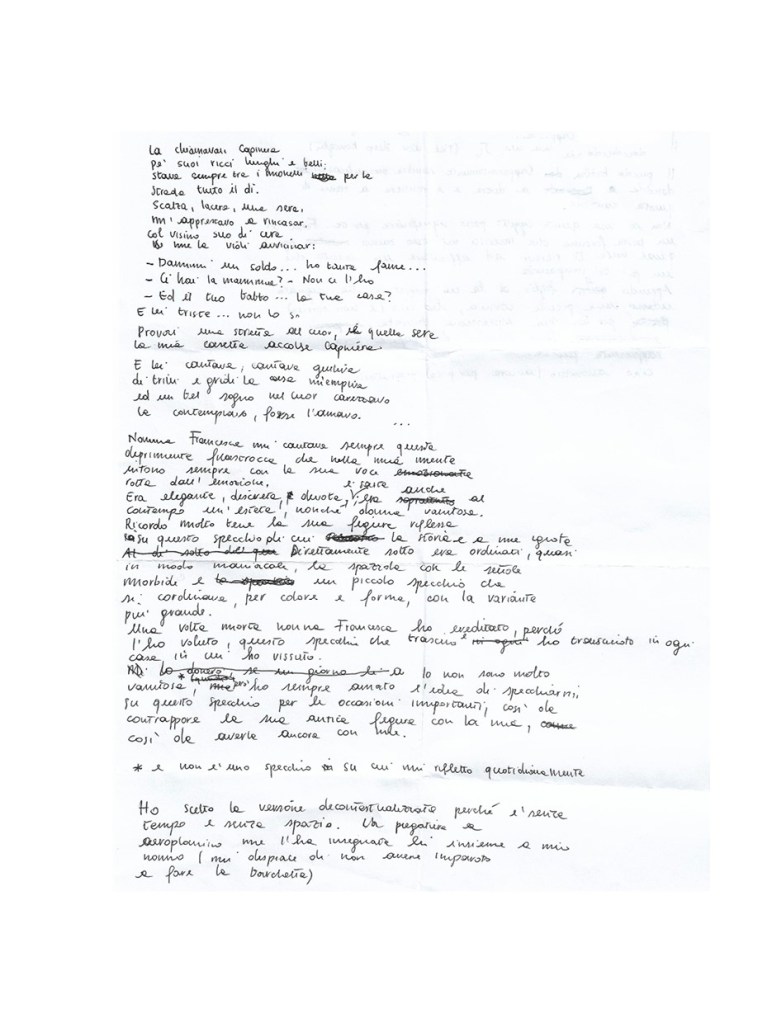 La chiamavan Capinera
pe' suoi ricci lunghi e belli:
stava sempre tra i monelli per la
strada tutto il dì.
Scalza, lacera, una sera,
m'apprestavo a rincasar.
Col visino suo di cera
me la vidi avvicinar:
- Dammi un soldo... ho tanta fame...
- Ci hai la mamma? - Non ce l'ho
- Ed il tuo babbo... la tua casa?
E lei triste... non lo so
Provai una stretta al cuor, e quella sera
la mia casetta accolse Capinera.
E lei cantava, cantava giuliva
di trilli e gridi la casa m'empiva
ed un bel sogno nel cuor carezzavo
la contemplavo, forse l'amavo.
...
Nonna Francesca mi cantava sempre questa
deprimente filastrocca che nella mia mente
intono sempre con la sua voce
rotta dall'emozione.
Era elegante, discreta, devota, e sarta anche al
contempo un'esteta, nonché donna vanitosa.
Ricordo molto bene la sua figura riflessa
su questo specchio di cui la storia è a me ignota
Direttamente sotto era ordinati, quasi
in modo maniacale, la spazzola con le setole
morbide e un piccolo specchio che
si coordinava, per colore e forma, con la variante
più grande.
Una volta morta nonna Francesca ho ereditato, perché
l'ho voluto, questo specchio che trascino e ho trascinato in ogni
casa in cui ho vissuto.
Io non sono molto
vanitosa, * ho sempre amato l'idea di specchiarmi
su questo specchio per le occasioni importanti, così da
contrapporre la sua antica figura con la mia,
così da averla ancora con me.
* e non è uno specchio su cui mi rifletto quotidianamente
Ho scelto la versione decontestualizzata perché è senza
tempo e senza spazio. La piegatura a
aeroplanino me l'ha insegnata lei insieme a mio
nonno (mi dispiace di non avere imparato
a fare la barchetta)